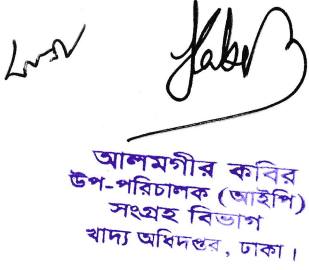 আলমগীর কবির
উপ-পরিচালক (আইপি)
সংগ্রহ বিভাগ
খাদ্য অধিদপ্তর, ঢাকা।